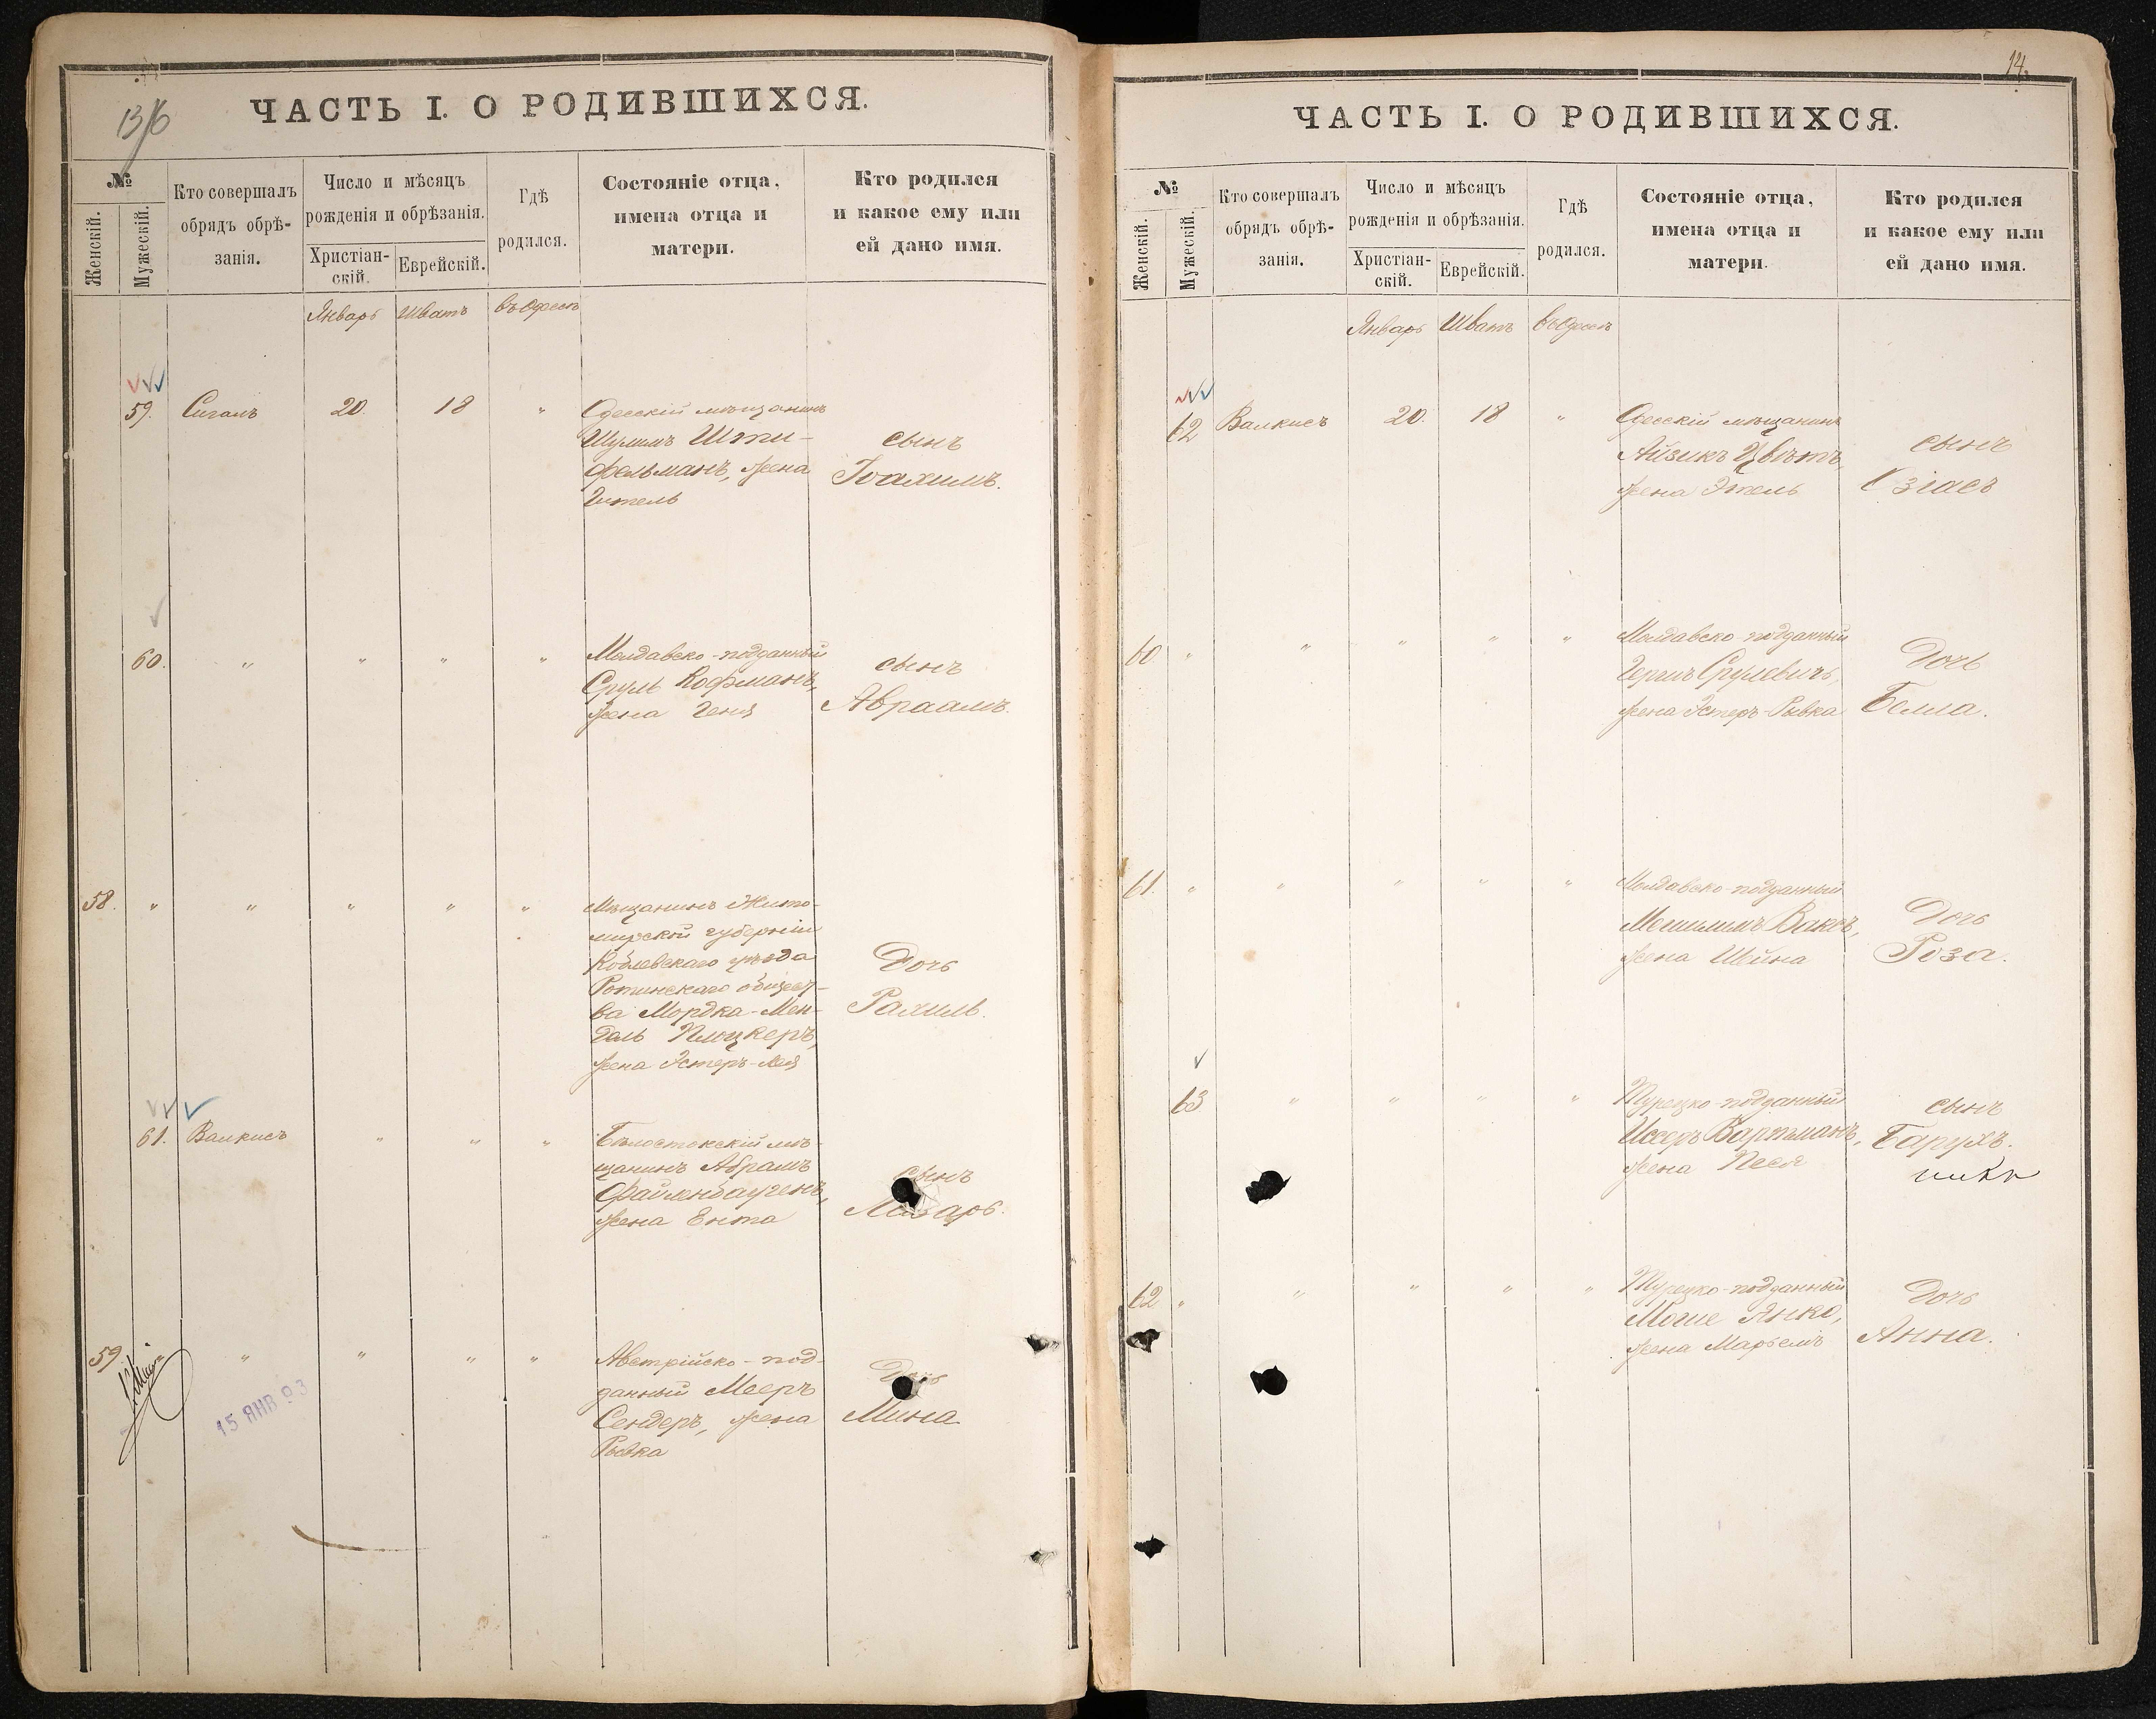 13/6
ЧАСТЬ I. О РОДИВШИХСЯ.
№
Женскій.
Мужескій.
Кто совершалъ
обрядъ обрѣ-
занія.
Число и мѣсяцъ
рожденія и обрѣзанія.
Христіан-
скій.
Еврейскій.
Гдѣ
родился.
Состояніе отца,
имена отца и
матери.
Кто родился
и какое ему или
ей дано имя.
Январь Шватъ въ Одессѣ
59. Сигалъ 20. 18 "
Одесскій мѣщанинъ
Шулимъ Шти-
фельманъ, жена
Гитель
сынъ
Іоахимъ.
60. " " " "
Молдавско-подданный
Сруль Кофманъ,
жена Геня
сынъ
Авраамъ.
58. " " " " "
Мѣщанинъ Жито-
мирской губерніи
уѣзда
общест-
ва Мордка-Мен-
дель Плоцкеръ,
жена Эстеръ-Лея
Дочь
Рахиль.
61. Валкисъ " " "
Бѣлостокскій мѣ-
щанинъ Абрамъ
Файленбаугенъ,
жена Ента
сынъ
Лазарь.
59. " " " "
Австрійско-под-
данный Мееръ
Сендеръ, жена
Рывка
Дочь
Мина
15 ЯНВ 93
14.
ЧАСТЬ I. О РОДИВШИХСЯ.
№
Женскій.
Мужескій.
Кто совершалъ
обрядъ обрѣ-
занія.
Число и мѣсяцъ
рожденія и обрѣзанія.
Христіан-
скій.
Еврейскій.
Гдѣ
родился.
Состояніе отца,
имена отца и
матери.
Кто родился
и какое ему или
ей дано имя.
Январь Шватъ въ Одессѣ
62 Валкисъ 20. 18 "
Одесскій мѣщанинъ
Айзикъ Цвѣтъ,
жена Этель
сынъ
Озіасъ
60. " " " " "
Молдавско-подданный
Гершъ Срулевичъ,
жена Эстеръ-Рывка
Дочь
Белла.
61. " " " " "
Молдавско-подданный
Мешилимъ Ваксъ,
жена Шейна
Дочь
Роза.
63 " " " "
Турецко-подданный
Иссеръ Вартманъ,
жена Песя
сынъ
Барухъ.
62 " " " " "
Турецко-подданный
Моше Янко,
жена Марьемъ
Дочь
Анна.